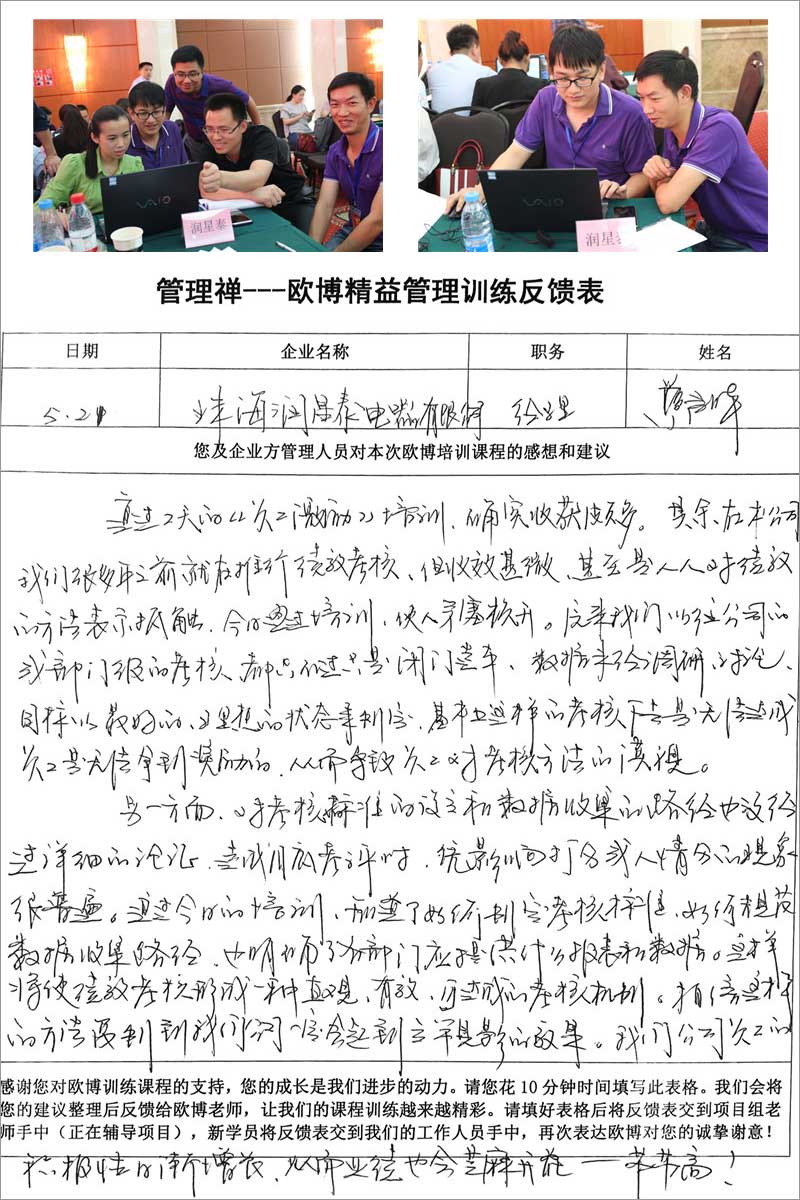 VAIO
润星泰
VAIO
润星泰
管理禅---欧博精益管理训练反馈表
日期 企业名称 职务 姓名
5.21 珠海润星泰电器有限公司 经理
您及企业方管理人员对本次欧博培训课程的感想和建议
通过2天的《员工激励》培训，确实收获颇多。其余在本公司
我们很多年之前就在推行绩效考核、但收效甚微、甚至是人人对绩效
的方法表示抵触，今日通过培训，使人茅塞顿开。原来我们以往公司的
或部门级的考核、都只不过只是闭门造车、数据未经调研、讨论、
目标以最好的、理想的状态来制定，基本上这样的考核 是无法达成
员工是无法拿到奖励的，从而导致员工对考核方法的漠视。
另一方面，对考核标准的设立和数据收集的路径也没经
过详细的论证，造成月底考评时，凭影响打分或人情分的现象
很普遍。通过今日的培训，知道了如何制定考核标准，如何提及
数据收集路径，也明晰了各部门应提供什么报表和数据。这样
将使绩效考核形成一种直观、有效、可达成的考核机制。相信这样
的方法复制到我们公司一定会起到立竿见影的效果。我们公司员工的
感谢您对欧博训练课程的支持，您的成长是我们进步的动力。请您花 10 分钟时间填写此表格。我们会将
您的建议整理后反馈给欧博老师，让我们的课程训练越来越精彩。请填好表格后将反馈表交到项目组老
师手中（正在辅导项目），新学员将反馈表交到我们的工作人员手中，再次表达欧博对您的诚挚谢意！
积极性日渐增长，从而业绩也会芝麻开花——节节高！